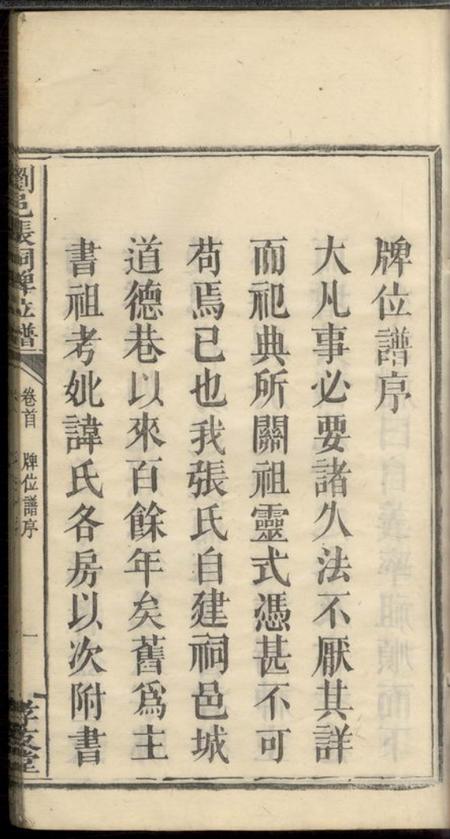 牌位譜序
大凡事必要諸久法不厭其詳
而祀典所關祖靈式憑甚不可
苟焉已也我張氏自建祠邑城
道德巷以來百餘年矣舊為主
書祖考妣諱氏各房以次附書
劉邑張祠牌位譜
卷首 牌位譜序
一
孝友堂